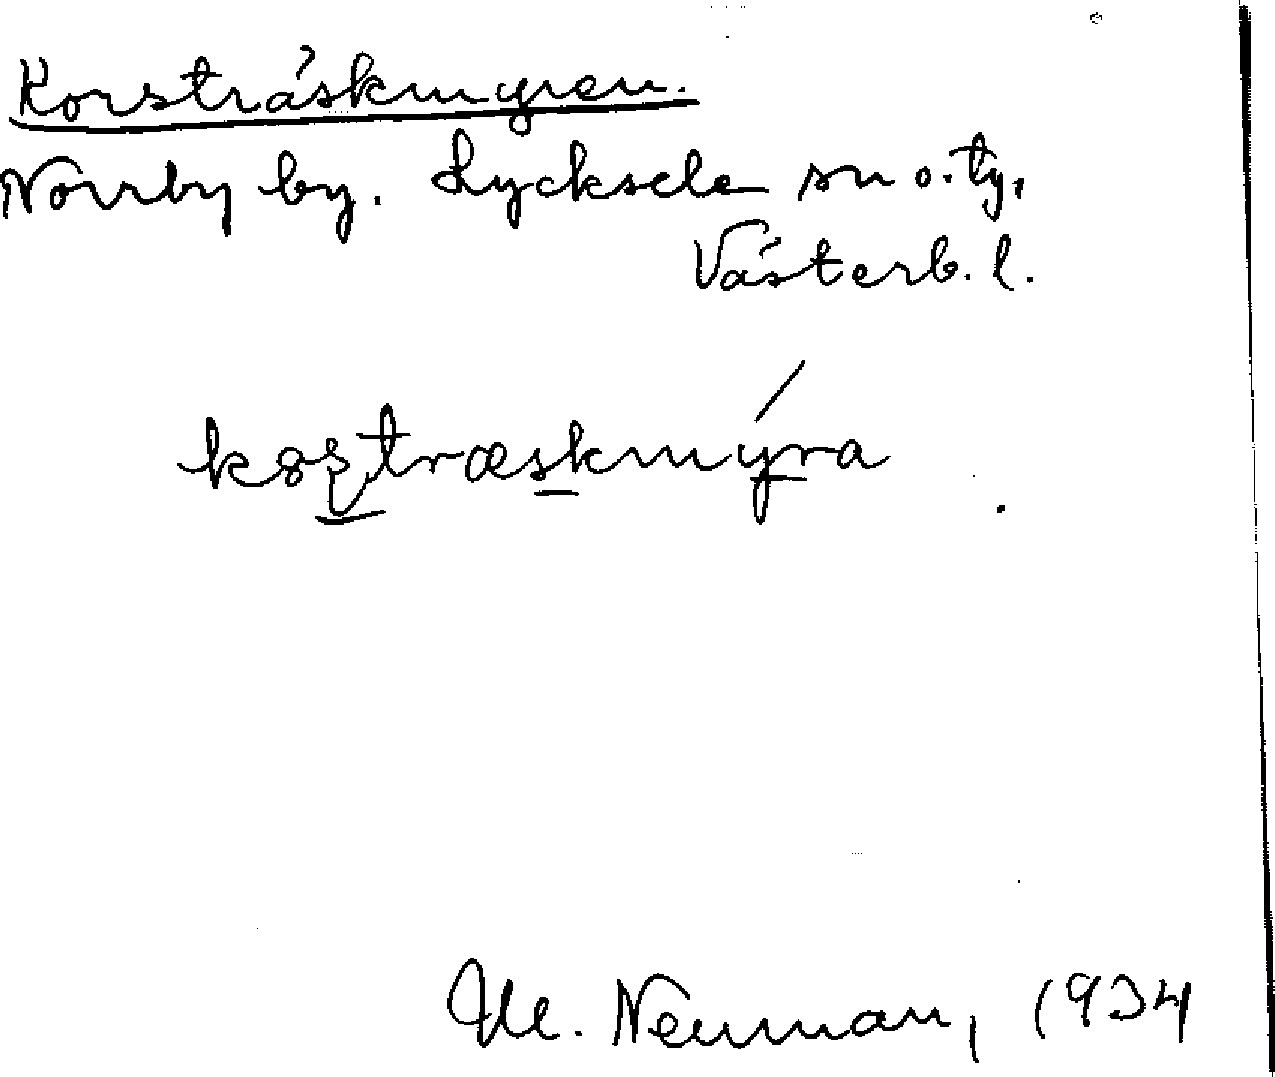 Korsträskmyren.
Norrby by. Lycksele sn o. ty,
Västerb. l.
k8ʂtræskmýra
M. Neuman, 1934